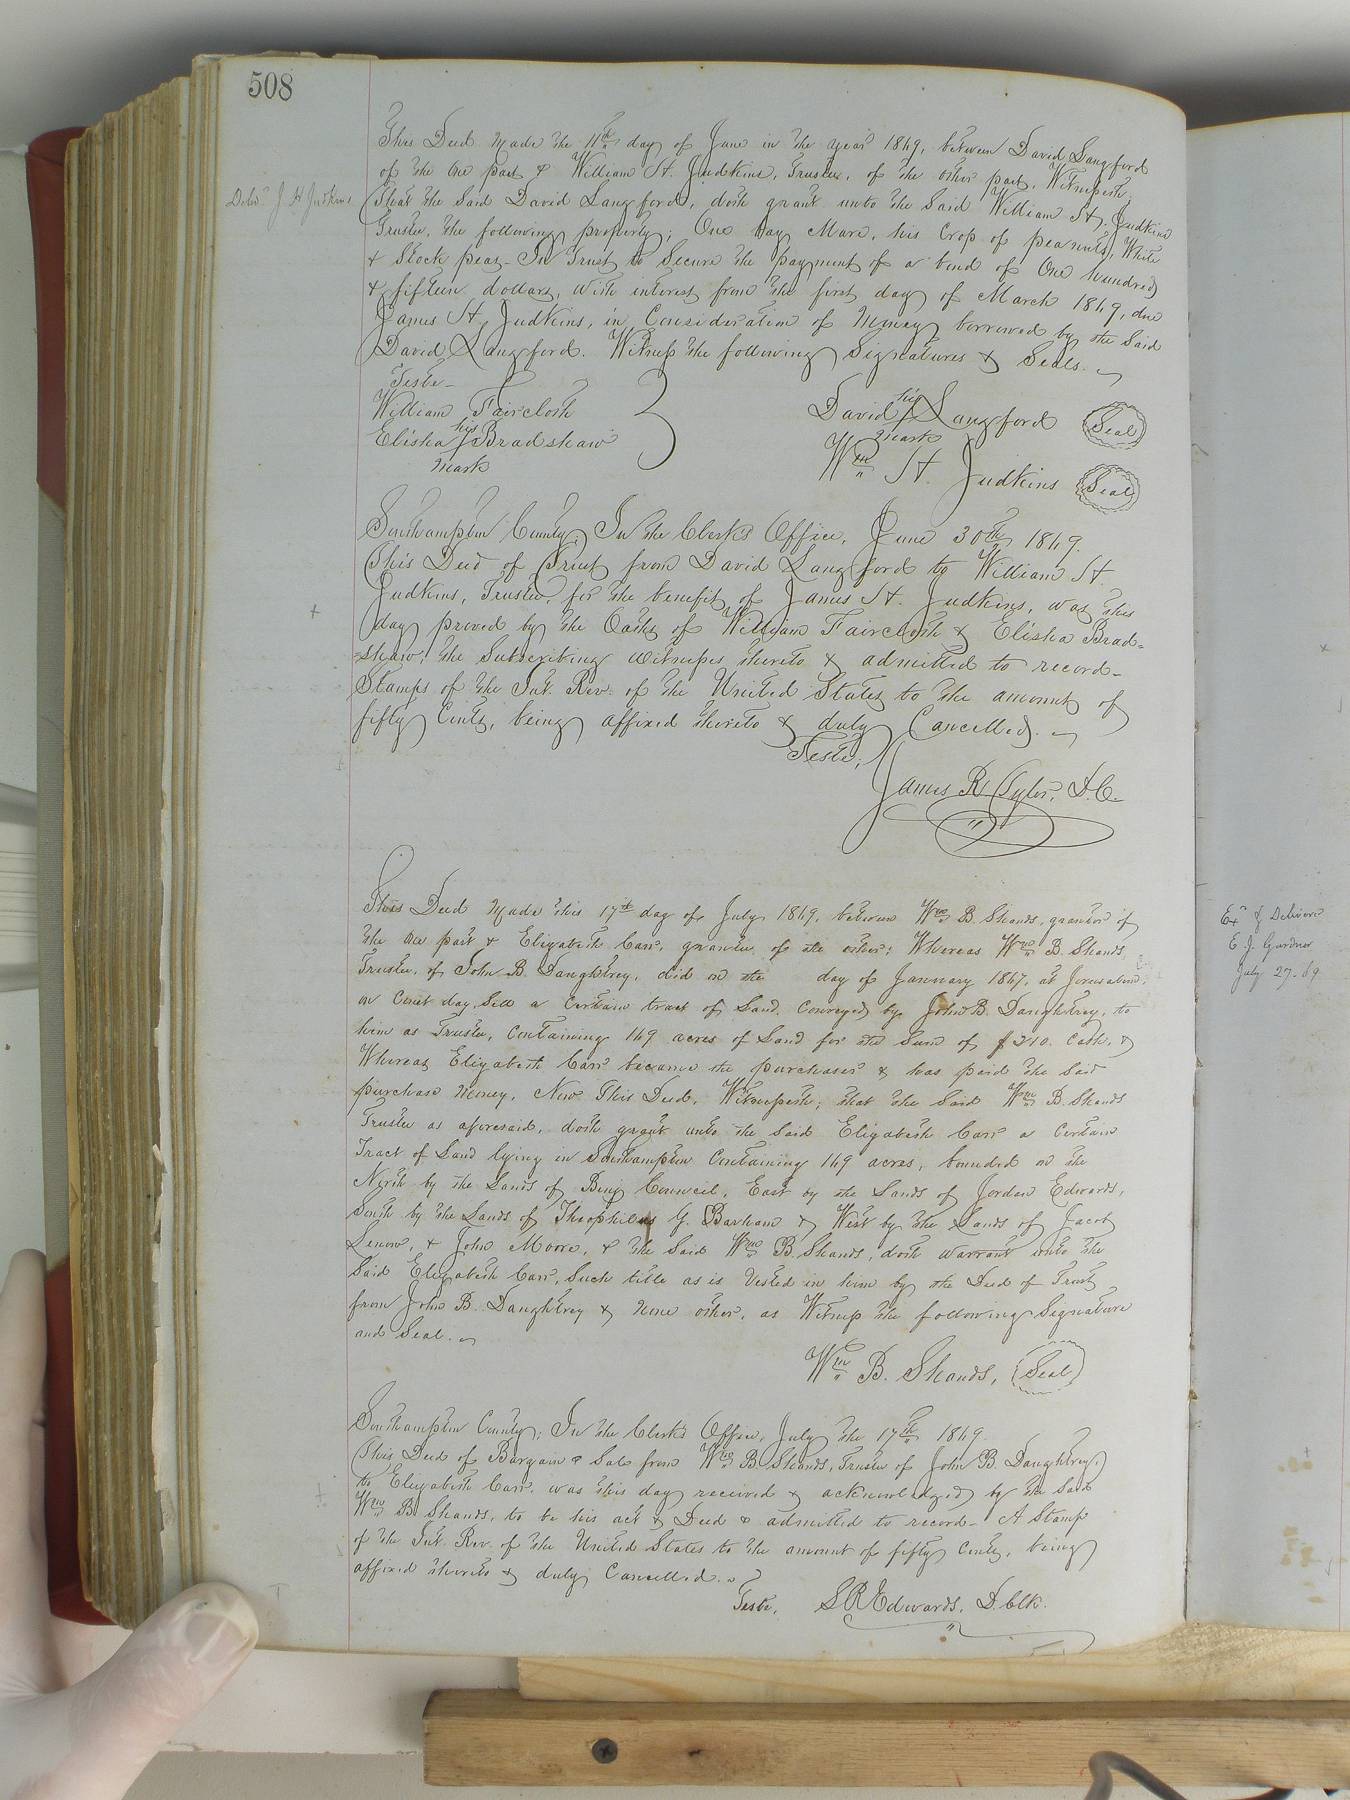 508
This Deed made the 11th day of June in the year 1869, between David Langford
of the one part & William H. Judkins, Trustee, of the other part, Witnesseth,
Delv'd J. H. Judkins
That the Said David Langford, doth grant unto the Said William H. Judkins
Trustee, the following property; One bay Mare, his Crop of peanuts, White
& Stock peas - In Trust to Secure the payment of a bond of One hundred
& fifteen dollars, with interest from the first day of March 1869, due
James H. Judkins, in Consideration of Money borrowed by the Said
David Langford. Witness the following Signatures & Seals.
Teste -
William Faircloth
Elisha his Bradshaw
mark
David his Langford Seal
mark
Wm H. Judkins Seal
Southampton County; In the Clerk's Office, June 30th 1869.
This Deed of Trust from David Langford to William H.
Judkins, Trustee, for the benefit of James H. Judkins, was this
day proved by the Oaths of William Faircloth & Elisha Brad-
shaw, the Subscribing witnesses thereto & admitted to record -
Stamps of the Int. Rev. of the United States to the amount of
fifty Cents, being affixed thereto & duly Cancelled.
Teste,
James R. Tyler, D.C.
This Deed made this 17th day of July 1869, between Wm B. Shands, grantor of
the one part & Elizabeth Carr, grantee of the other; Whereas Wm B. Shands,
Trustee, of John B. Daughtrey, did on the day of January 1867, at Jerusalem
on Court day, Sell a Certain tract of Land, Conveyed by John B. Daughtrey, to
him as Trustee, Containing 169 acres of Land for the Sum of $210. Cash, &
Whereas Elizabeth Carr became the purchaser & has paid the Said
purchase money, Now This Deed, Witnesseth; that the Said Wm B. Shands
Trustee as aforesaid, doth grant unto the Said Elizabeth Carr a Certain
Tract of Land lying in Southampton Containing 169 acres, bounded on the
North by the Lands of Benj Council, East by the Lands of Jordan Edwards,
South by the Lands of Theophilus G. Barham & West by the Lands of Jacob
Lenow, & John Moore, & the Said Wm B. Shands, doth warrant unto the
Said Elizabeth Carr, Such title as is Vested in him by the Deed of Trust
from John B. Daughtrey & none other, as Witness the following Signature
and Seal.
Wm B. Shands, Seal
Southampton County; In the Clerk's Office, July the 17th 1869.
This Deed of Bargain & Sale from Wm B. Shands, Trustee of John B. Daughtrey,
to Elizabeth Carr, was this day received & acknowledged by the Said
Wm B. Shands, to be his act & Deed & admitted to record - A Stamp
of the Int. Rev. of the United States to the amount of fifty Cents, being
affixed thereto & duly Cancelled.
Teste, S R Edwards, D. Clk.
Exd & Delivere
E. J. Gardner
July 27. 69